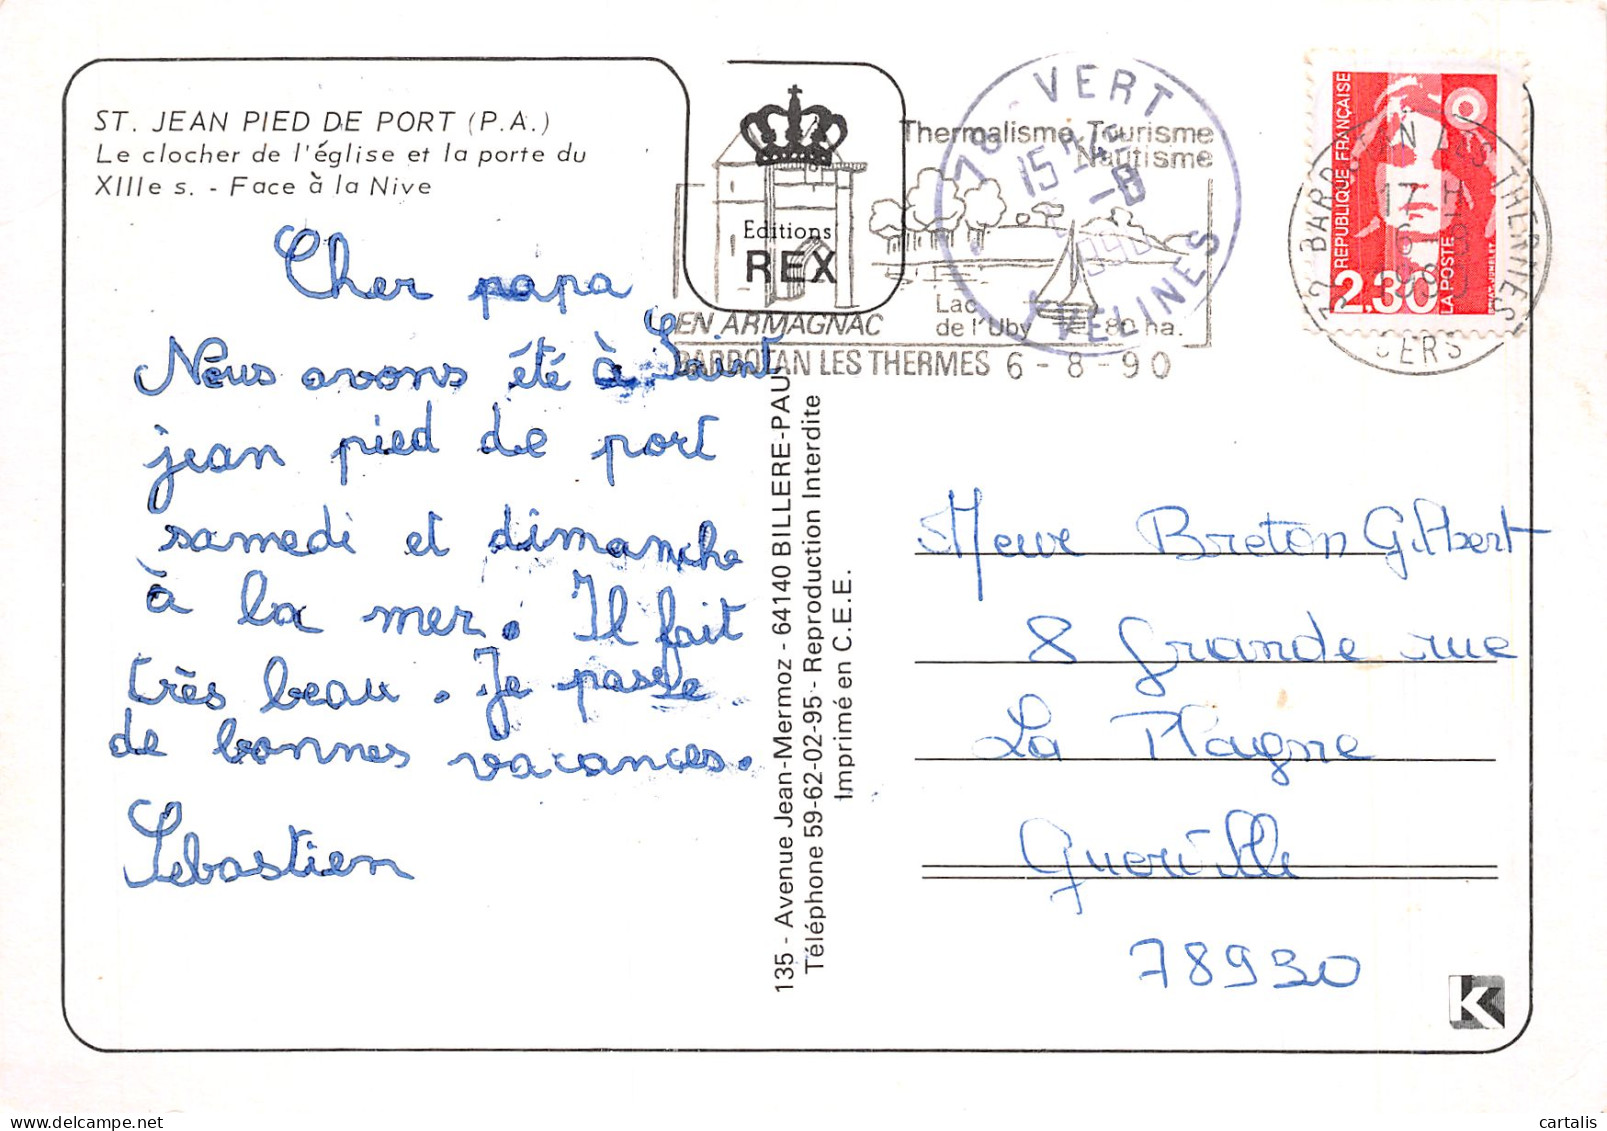 ST. JEAN PIED DE PORT (P.A.)
Le clocher de l'église et la porte du
XIIIe s. - Face à la Nive
Cher papa
Nous avons été à Saint
jean pied de port
samedi et dimanche
à la mer. Il fait
très beau. Je passe
de bonnes vacances.
Sébastien
Editions
REX
135 - Avenue Jean-Mermoz - 64140 BILLERE-PAU
Téléphone 59-62-02-95 - Reproduction Interdite
Imprimé en C.E.E.
Thermalisme Tourisme
Nautisme
Lac
de l'Uby 80 ha.
EN ARMAGNAC
BARBOTAN LES THERMES 6-8-90
78 VERT
15H
-8
1990
YVELINES
REPUBLIQUE FRANÇAISE
2,30
LA POSTE
32 BARBOTAN LES THERMES
17 H
6-8
1990
GERS
Breton Gilbert
8 grande rue
La Plagne
Guerville
78930
K
cartalis